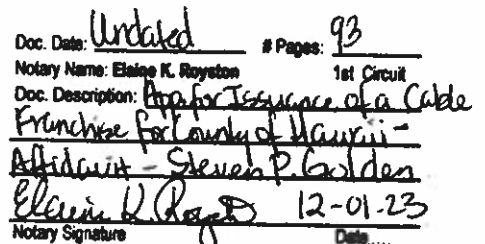 Doc. Date: Undated # Pages: 93
Notary Name: Elaine K. Royston 1st Circuit
Doc. Description: App for Issuance of a Cable
Franchise for County of Hawaii -
Affidavit - Steven P. Golden
Elaine K. Royston 12-01-23
Notary Signature Date